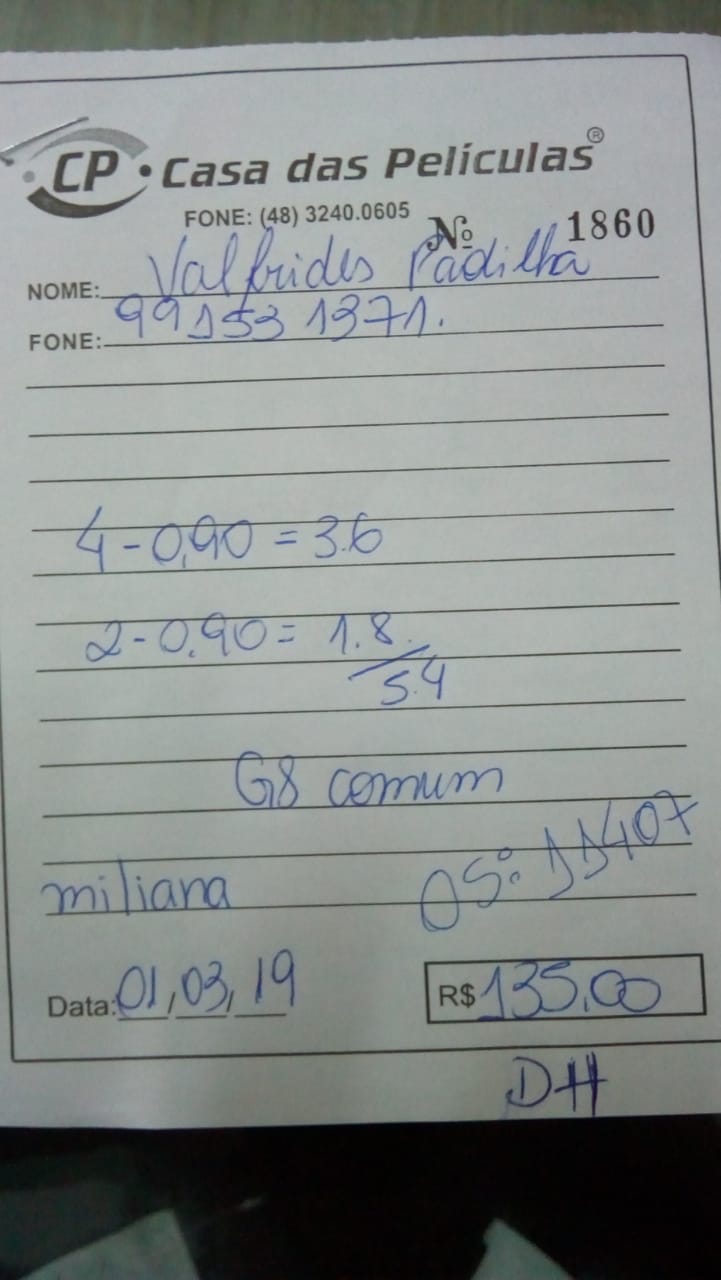 CP • Casa das Películas®
FONE: (48) 3240.0605
Nº 1860
NOME: Valfrides Padilha
FONE: 99153 1371.
4 - 0,90 = 3.6
2 - 0.90 = 1.8
5.4
G8 comum
OS: 11407
miliana
Data: 01,03,19
R$ 135,00
DH